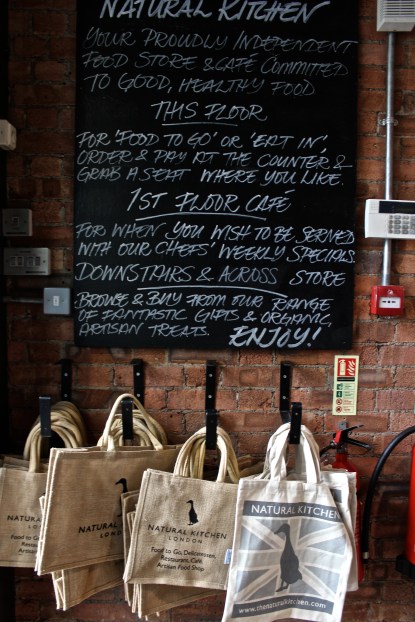 NATURAL KITCHEN
YOUR PROUDLY INDEPENDENT
FOOD STORE & CAFÉ COMMITTED
TO GOOD, HEALTHY FOOD
THIS FLOOR
FOR 'FOOD TO GO' OR 'EAT IN',
ORDER & PAY AT THE COUNTER &
GRAB A SEAT WHERE YOU LIKE.
1ST FLOOR CAFÉ
FOR WHEN YOU WISH TO BE SERVED
WITH OUR CHEFS' WEEKLY SPECIALS.
DOWNSTAIRS & ACROSS STORE
BROWSE & BUY FROM OUR RANGE
OF FANTASTIC GIFTS & ORGANIC,
ARTISAN TREATS. ENJOY!
NATURAL
LONDON
NATURAL
LONDON
NATURAL KITCHEN
LONDON
Food to Go, Delicatessen,
Restaurant, Café,
Artisan Food Shop
NATURAL KITCHEN
www.thenaturalkitchen.com